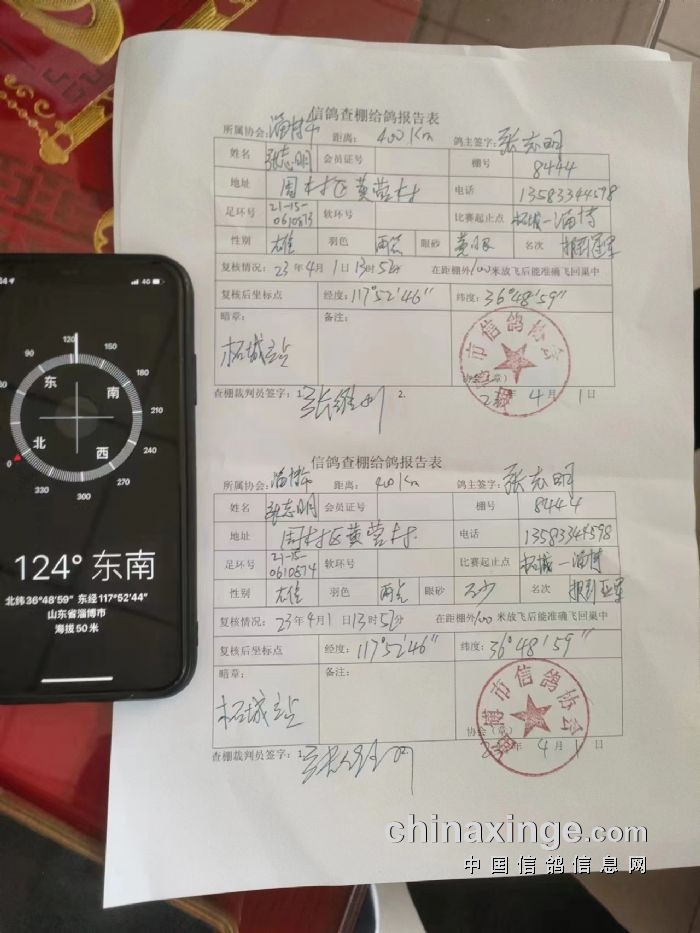 信鸽查棚给鸽报告表
所属协会: 淄博市 距离: 400Km 鸽主签字: 张志明
姓名 张志明 会员证号 棚号 8444
地址 周村区黄营村 电话 13583344598
足环号 21-15-0610873 软环号 比赛起止点 柘城—淄博
性别 雄 羽色 雨点 眼砂 黄眼 名次 报到冠军
复核情况: 23年4月1日13时52分 在距棚外100米放飞后能准确飞回巢中
复核后坐标点 经度: 117°52′46″ 纬度: 36°48′59″
暗章: 备注:
柘城站
淄博市信鸽协会
协会(章)
23年 4月 1日
查棚裁判员签字: 1. 2.
信鸽查棚给鸽报告表
所属协会: 淄博市 距离: 400Km 鸽主签字: 张志明
姓名 张志明 会员证号 棚号 8444
地址 周村区黄营村 电话 13583344598
足环号 21-15-0610874 软环号 比赛起止点 柘城—淄博
性别 雄 羽色 雨点 眼砂 名次 报到亚军
复核情况: 23年4月1日13时52分 在距棚外100米放飞后能准确飞回巢中
复核后坐标点 经度: 117°52′46″ 纬度: 36°48′59″
暗章: 备注:
柘城站
淄博市信鸽协会
协会(章)
2 年 4月 1日
查棚裁判员签字: 1.
4G
120
90 150
60 180
30 210
0 240
330 270
300
东 南
北 西
124° 东南
北纬 36°48'59" 东经 117°52'44"
山东省淄博市
海拔 50 米
chinaxinge.com
中国信鸽信息网